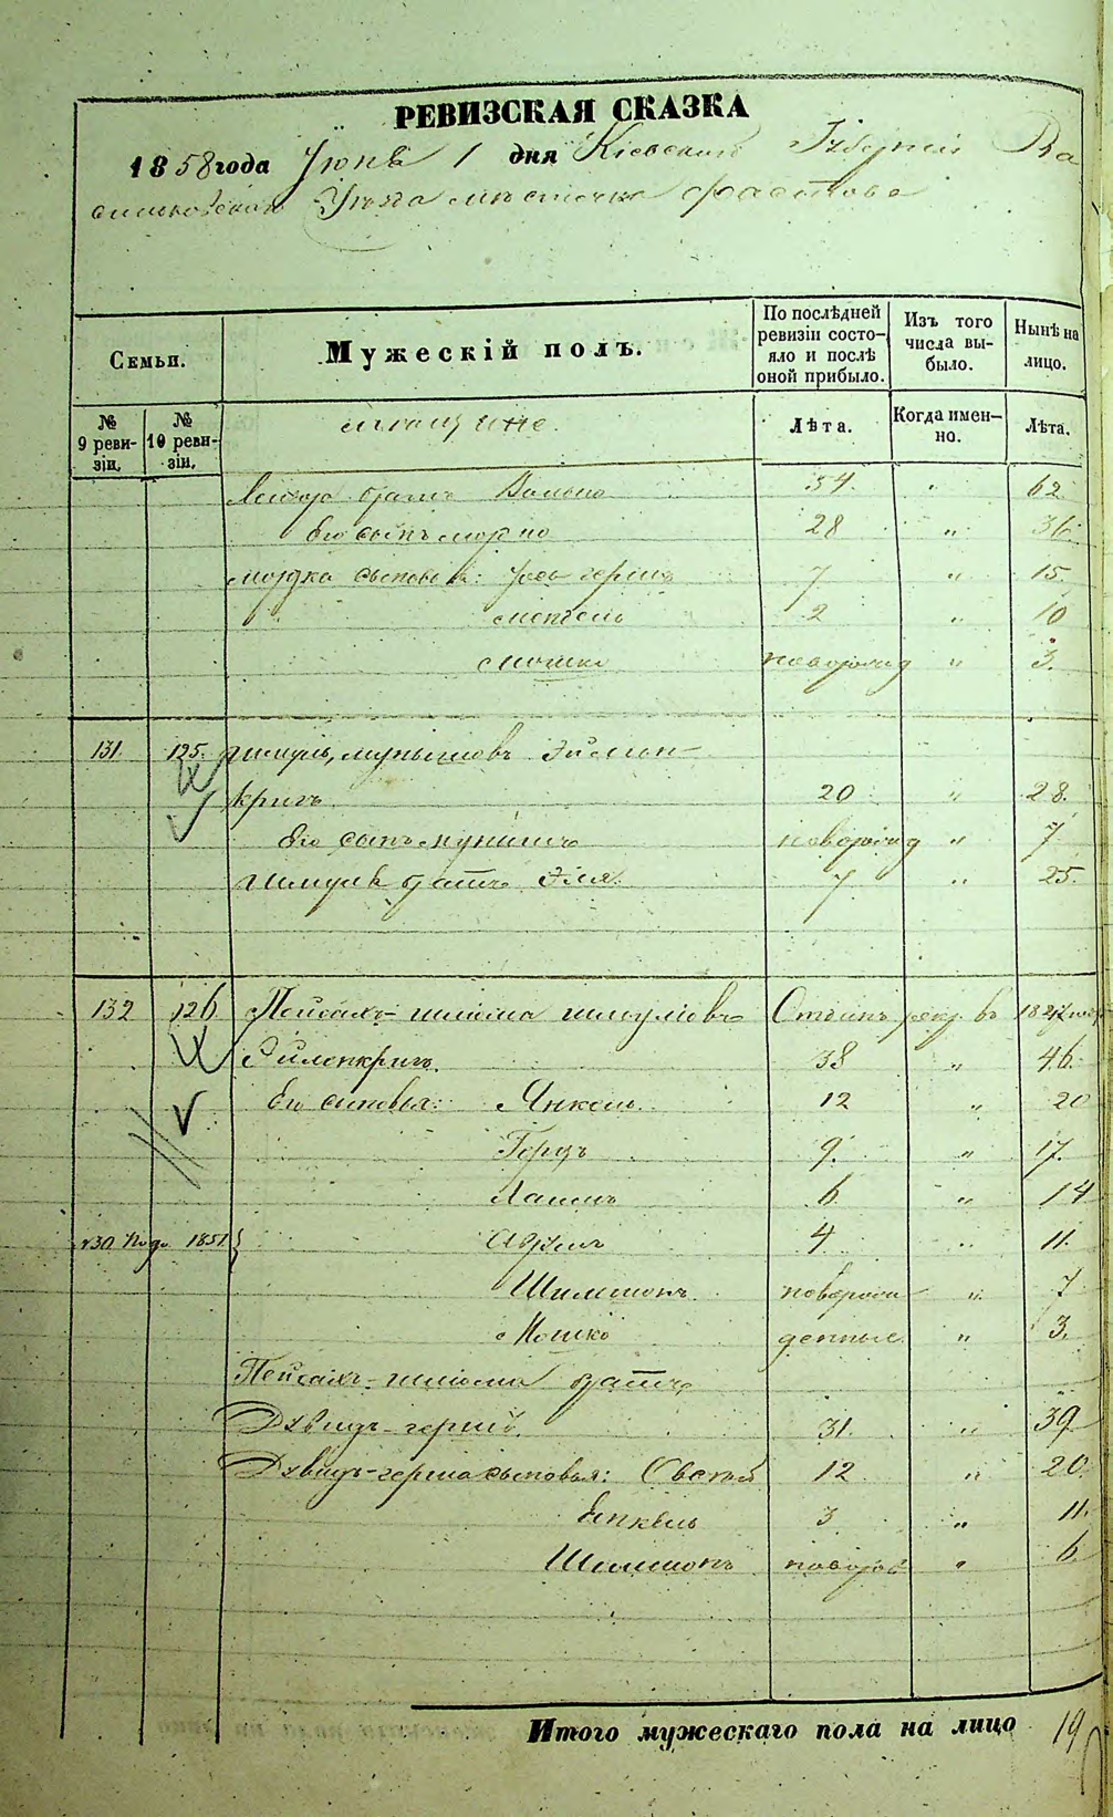 РЕВИЗСКАЯ СКАЗКА
1858 года Іюня 1 дня Кіевской Губерніи Ва
сильковскаго Уѣзда мѣстечка Фастова
Семьи.
Мужескій полъ.
По послѣдней ревизіи состо-яло и послѣ оной прибыло.
Изъ того числа вы-было.
Нынѣ на лицо.
№ 9 реви-зіи.
№ 10 реви-зіи.
мѣщане.
Лѣта.
Когда имен-но.
Лѣта.
братъ Волько 54 " 62.
Его сынъ Мордко 28 " 36.
Мордка сыновья: Іось Герша 7 " 15.
2 " 10
Мошко новорожд " 3.
131. 125. Шмуль Мунышовъ
кригъ 20 " 28.
Его сынъ Мунышъ новорожд " 7
Шмуля братъ Эля. 7 " 25.
132 126 Пейсахъ-Шлёма Шмулёвъ рекр. въ
Зильпкригъ. 38 " 46.
Его сыновья: Янкель. 12 " 20
Герцъ 9. " 17.
Хаимъ 6. " 14
1851 } 4 " 11.
Шимшонъ новорож " 7
Мошко денные " 3.
Пейсахъ-Шлёма братъ
Давидъ-Герша. 31. " 39
Давидъ-Герша сыновья: Овсей 12 " 20.
Янкель 3 " 11.
Шимшонъ новорож " 6
Итого мужескаго пола на лицо 19